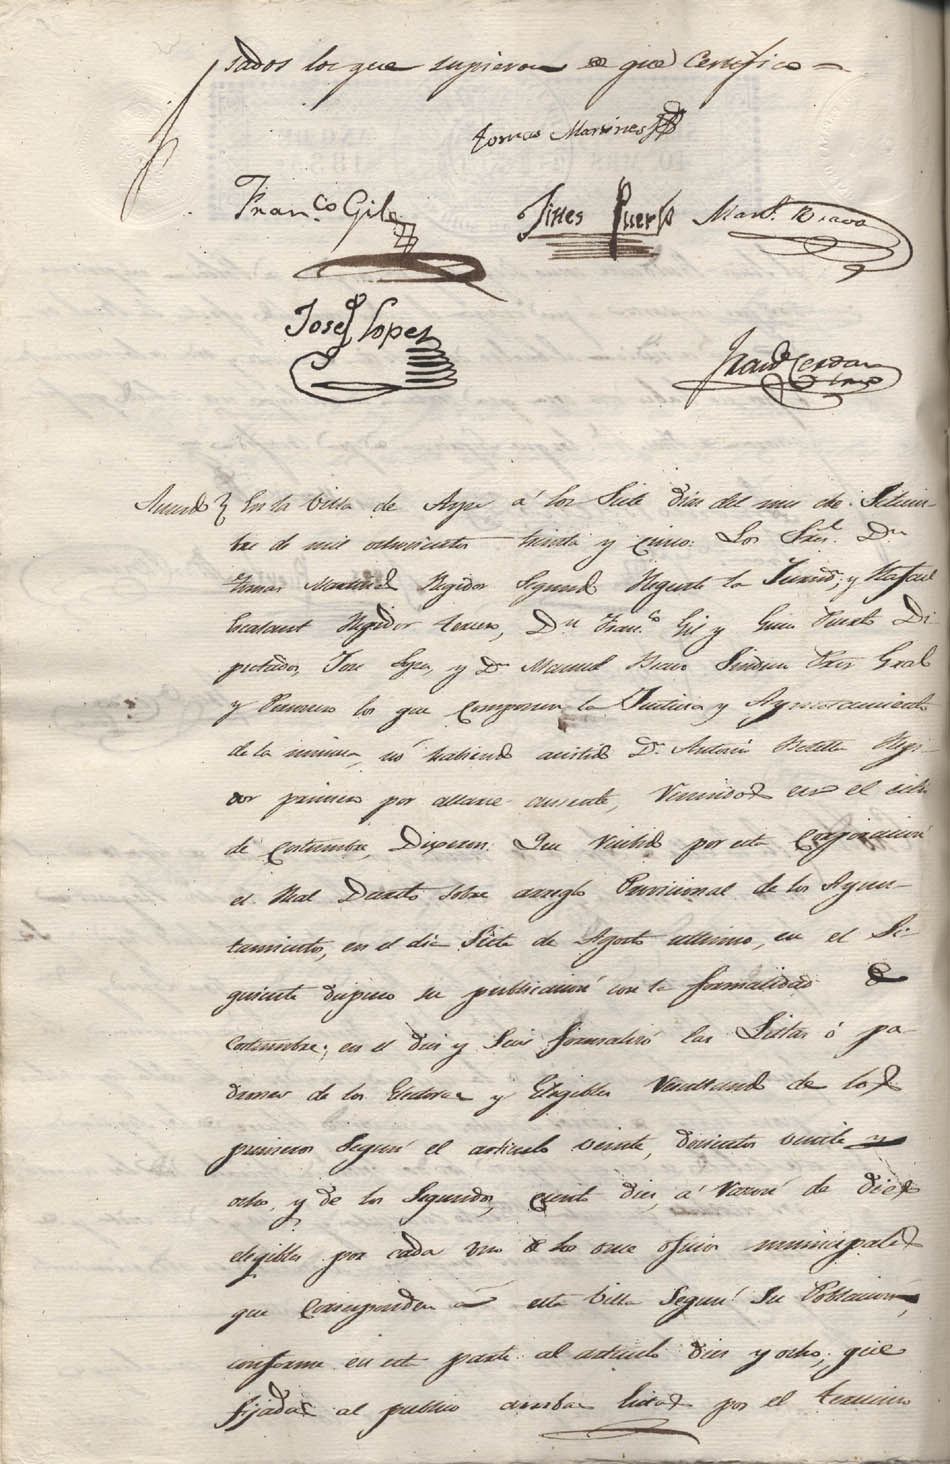 sados los que supieron de que Certifico =
Tomas Martines
Franco Gil
Jines Puerto
Manl. Bravo
Josef Lopez
Franco Cerdan
Acuerdo } En la Villa de Aspe á los Siete dias del mes de Setiem-
bre de mil ochocientos treinta y cinco: Los Sres. Dn
Tomas Martinez Regidor Segundo Regente la Jurisdn; y Rafael
Escalant Regidor tercero, Dn Franco Gil y Gines Puerto Di-
putados, Jose Lopez, y Dn Manuel Bravo Sindico Pror Gral
y Personero los que componen la Justicia y Ayuntamiento
de la misma, nó habiendo asistido Dn Antonio Botella Regi-
dor primero por allarse ausente, reunidos en el sitio
de costumbre, Dixeron: Que recibido por esta Corporacion
el Real Decreto sobre arreglo Provicional de los Ayun-
tamientos, en el dia Siete de Agosto ultimo, en el Si-
guiente dispuso su publicacion con la formalidad de
Costumbre; en el dies y Seis formalizó las Listas ó pa-
drones de los Electores y Eligibles resultando de los
primeros Segun el articulo veinte, doscientos veinte y
ocho, y de los Segundos, ciento dies, á razon de dies
eligibles por cada uno de los once oficios municipales
que corresponden á esta Villa Segun Su Poblacion,
conforme en esta parte al articulo dies y ocho; que
fijadas al publico ambas listas por el termino